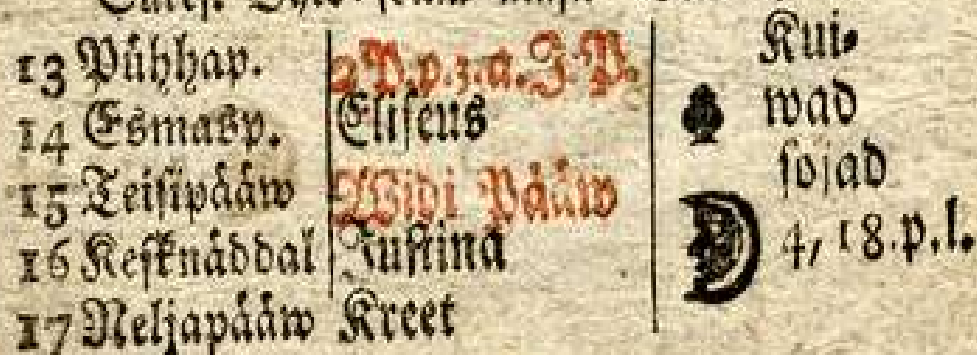 13 Pühhap. 2 P. p. 3. a. J. P. Kui-
14 Esmasp. Eliseus wad
15 Teisipääw Widi Pääw sojad
16 Kesknäddal Justina 4, 18. p. l.
17 Neljapääw Kreet